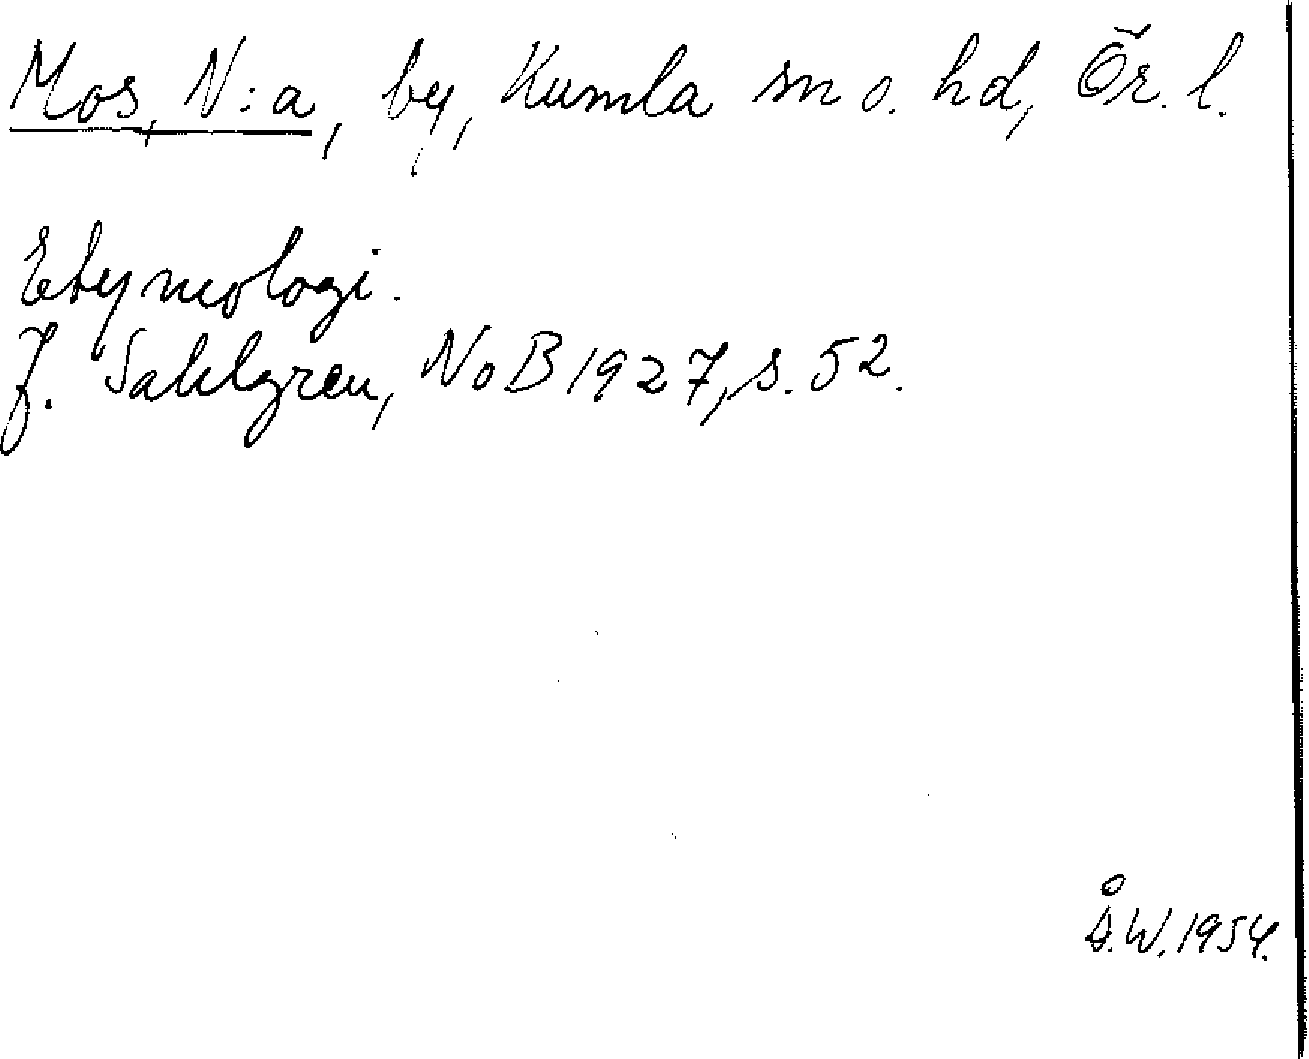 Mos, N:a, by, Kumla sn o. hd, Ör. l.
Etymologi.
J. Sahlgren, NoB 1927, s. 52.
Å.W. 1954.